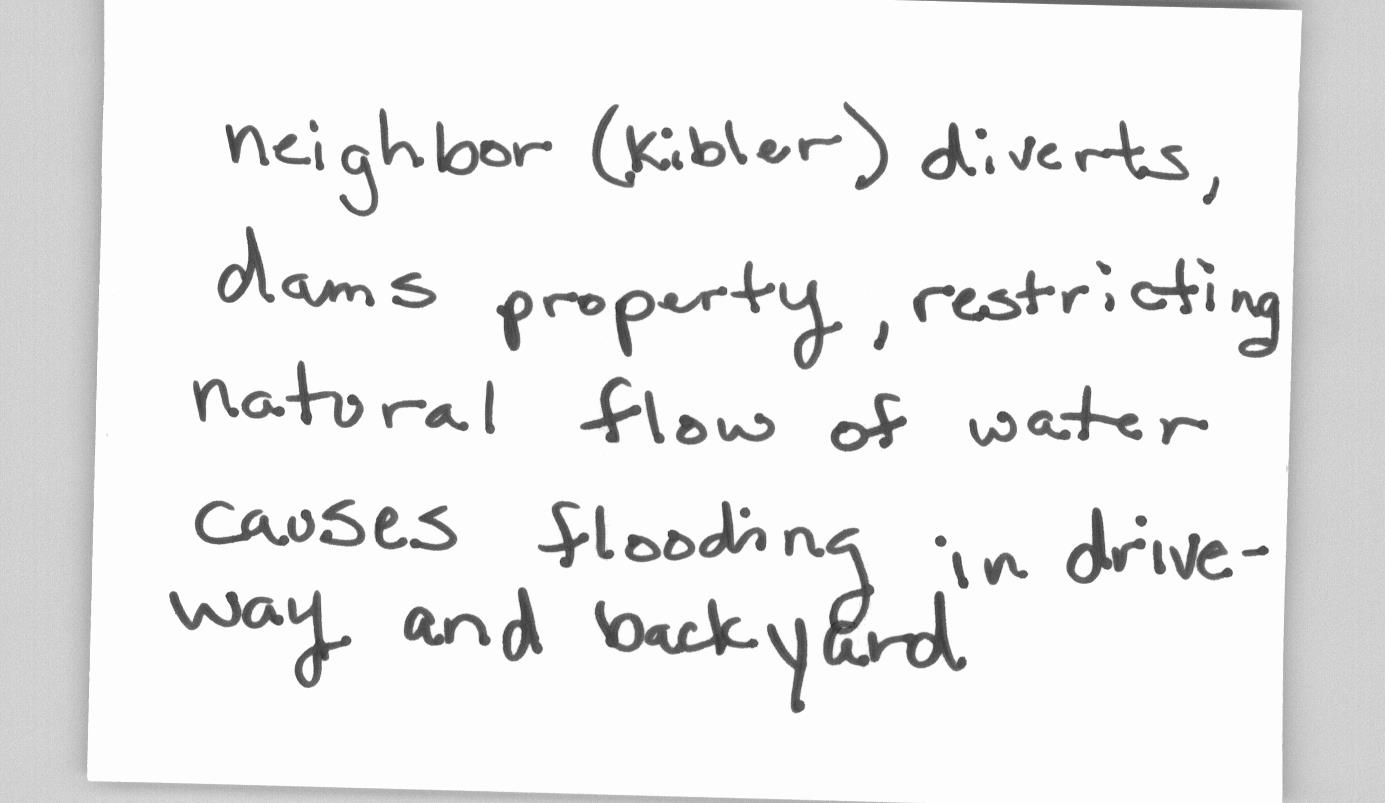 neighbor (Kibler) diverts,
dams property, restricting
natural flow of water
causes flooding in drive-
way and backyard